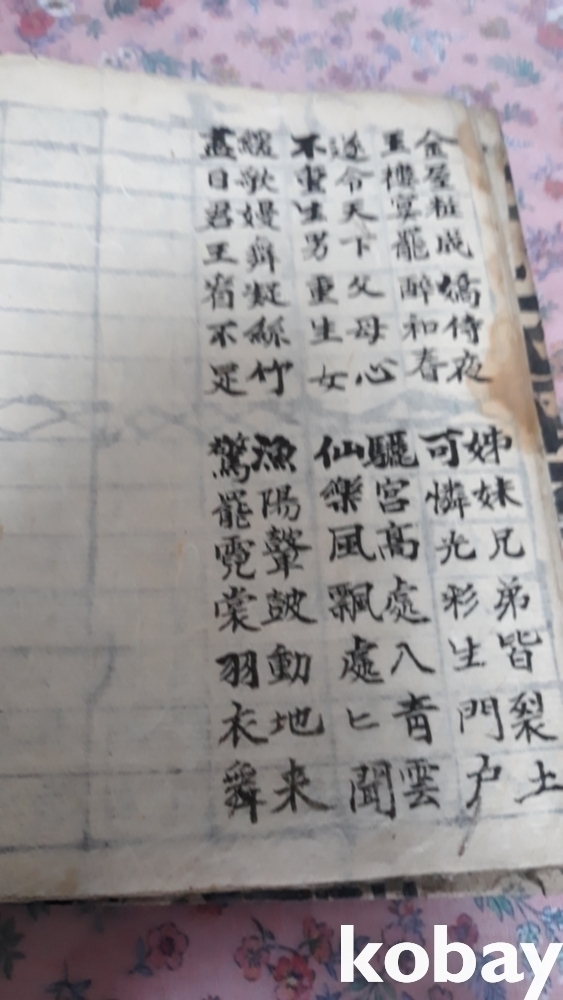 金屋粧成嬌侍夜
玉樓宴罷醉和春
姊妹兄弟皆裂土
可憐光彩生門户
遂令天下父母心
不重生男重生女
驪宮高處入青雲
仙樂風飄處匕聞
緩歌嫚舞凝絲竹
盡日君王看不足
漁陽鼙鼓動地来
驚罷霓裳羽衣舞
kobay